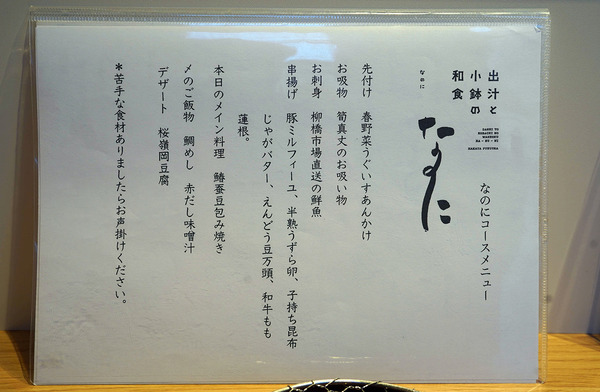 出汁と
小鉢の
和食
DASHI TO
KOBACHI NO
WASHOKU
NA・NO・NI
NAKAYA FUKUOKA
なのに
なのに
なのにコースメニュー
先付け 春野菜うぐいすあんかけ
お吸物 筍真丈のお吸い物
お刺身 柳橋市場直送の鮮魚
串揚げ 豚ミルフィーユ、半熟うずら卵、子持ち昆布
じゃがバター、えんどう豆万頭、和牛もも
蓮根。
本日のメイン料理 鰆蚕豆包み焼き
〆のご飯物 鯛めし 赤だし味噌汁
デザート 桜嶺岡豆腐
*苦手な食材ありましたらお声掛けください。